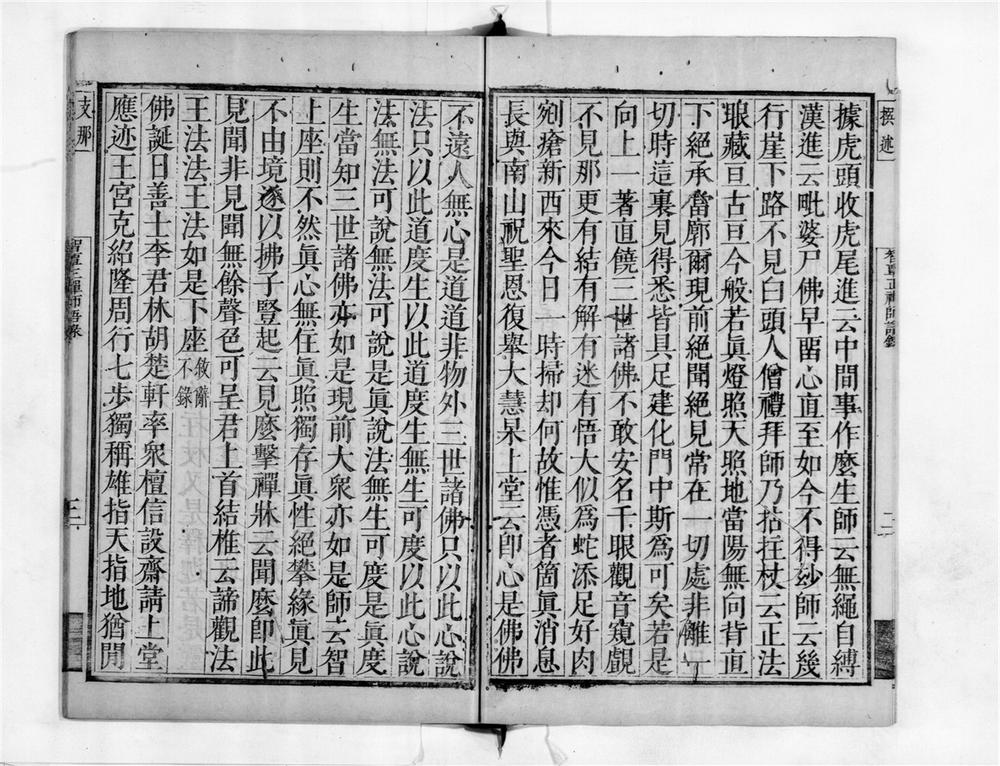 撰述
據虎頭收虎尾進云中間事作麼生師云無繩自縛
漢進云毗婆尸佛早留心直至如今不得玅師云幾
行崖下路不見白頭人僧禮拜師乃拈拄杖云正法
眼藏亘古亘今般若眞燈照天照地當陽無向背直
下絕承當廓爾現前絕聞絕見常在一切處非離一
切時這裏見得悉皆具足建化門中斯爲可矣若是
向上一著直饒三世諸佛不敢安名千眼觀音窺覷
不見那更有結有解有迷有悟大似爲蛇添足好肉
剜瘡新西來今日一時掃却何故惟憑者箇眞消息
長與南山祝聖恩復舉大慧杲上堂云卽心是佛佛
不遠人無心是道道非物外三世諸佛只以此心說
法只以此道度生以此道度生無生可度以此心說
法無法可說無法可說是眞說法無生可度是眞度
生當知三世諸佛亦如是現前大衆亦如是師云智
上座則不然眞心無住眞照獨存眞性絕攀緣眞見
不由境遂以拂子豎起云見麼擊禪牀云聞麼卽此
見聞非見聞無餘聲色可呈君上首結椎云諦觀法
王法法王法如是下座敘辭不錄
佛誕日善士李君林胡楚軒率衆檀信設齋請上堂
應迹王宮克紹隆周行七步獨稱雄指天指地猶閒
支那